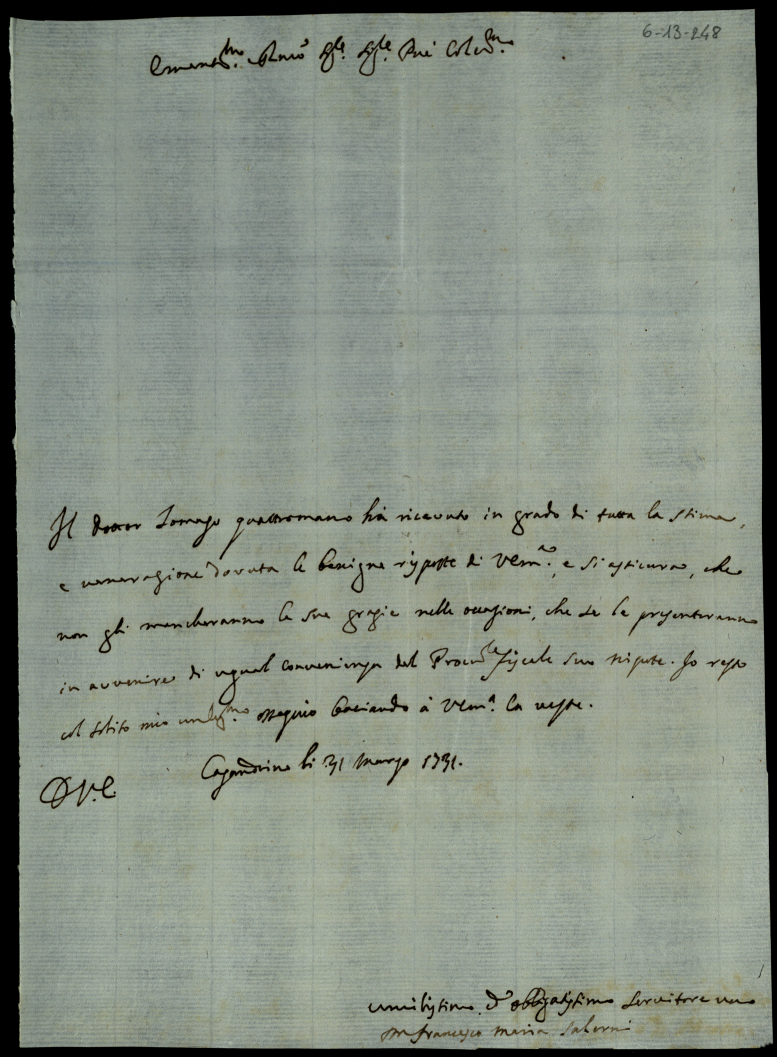 6-13-248
Eminent.mo Sig.re Sig.re Col.mo
Il dottor Tomaso quattromano hà ricevuto in grado di tutta la stima,
e venerazione dovuta le benigne risposte di V.Em.a, e si assicura, che
non gli mancheranno le sue grazie nelle occasioni, che se le presenteranno
in avvenire di ugual convenienza del Fiscale suo nipote. Io resto
col solito mio umiliss.mo ossequio baciando à V.Em.a la veste.
li 31 Marzo 1731.
umilissimo, ed obbligatissimo servitore vero
francesco maria